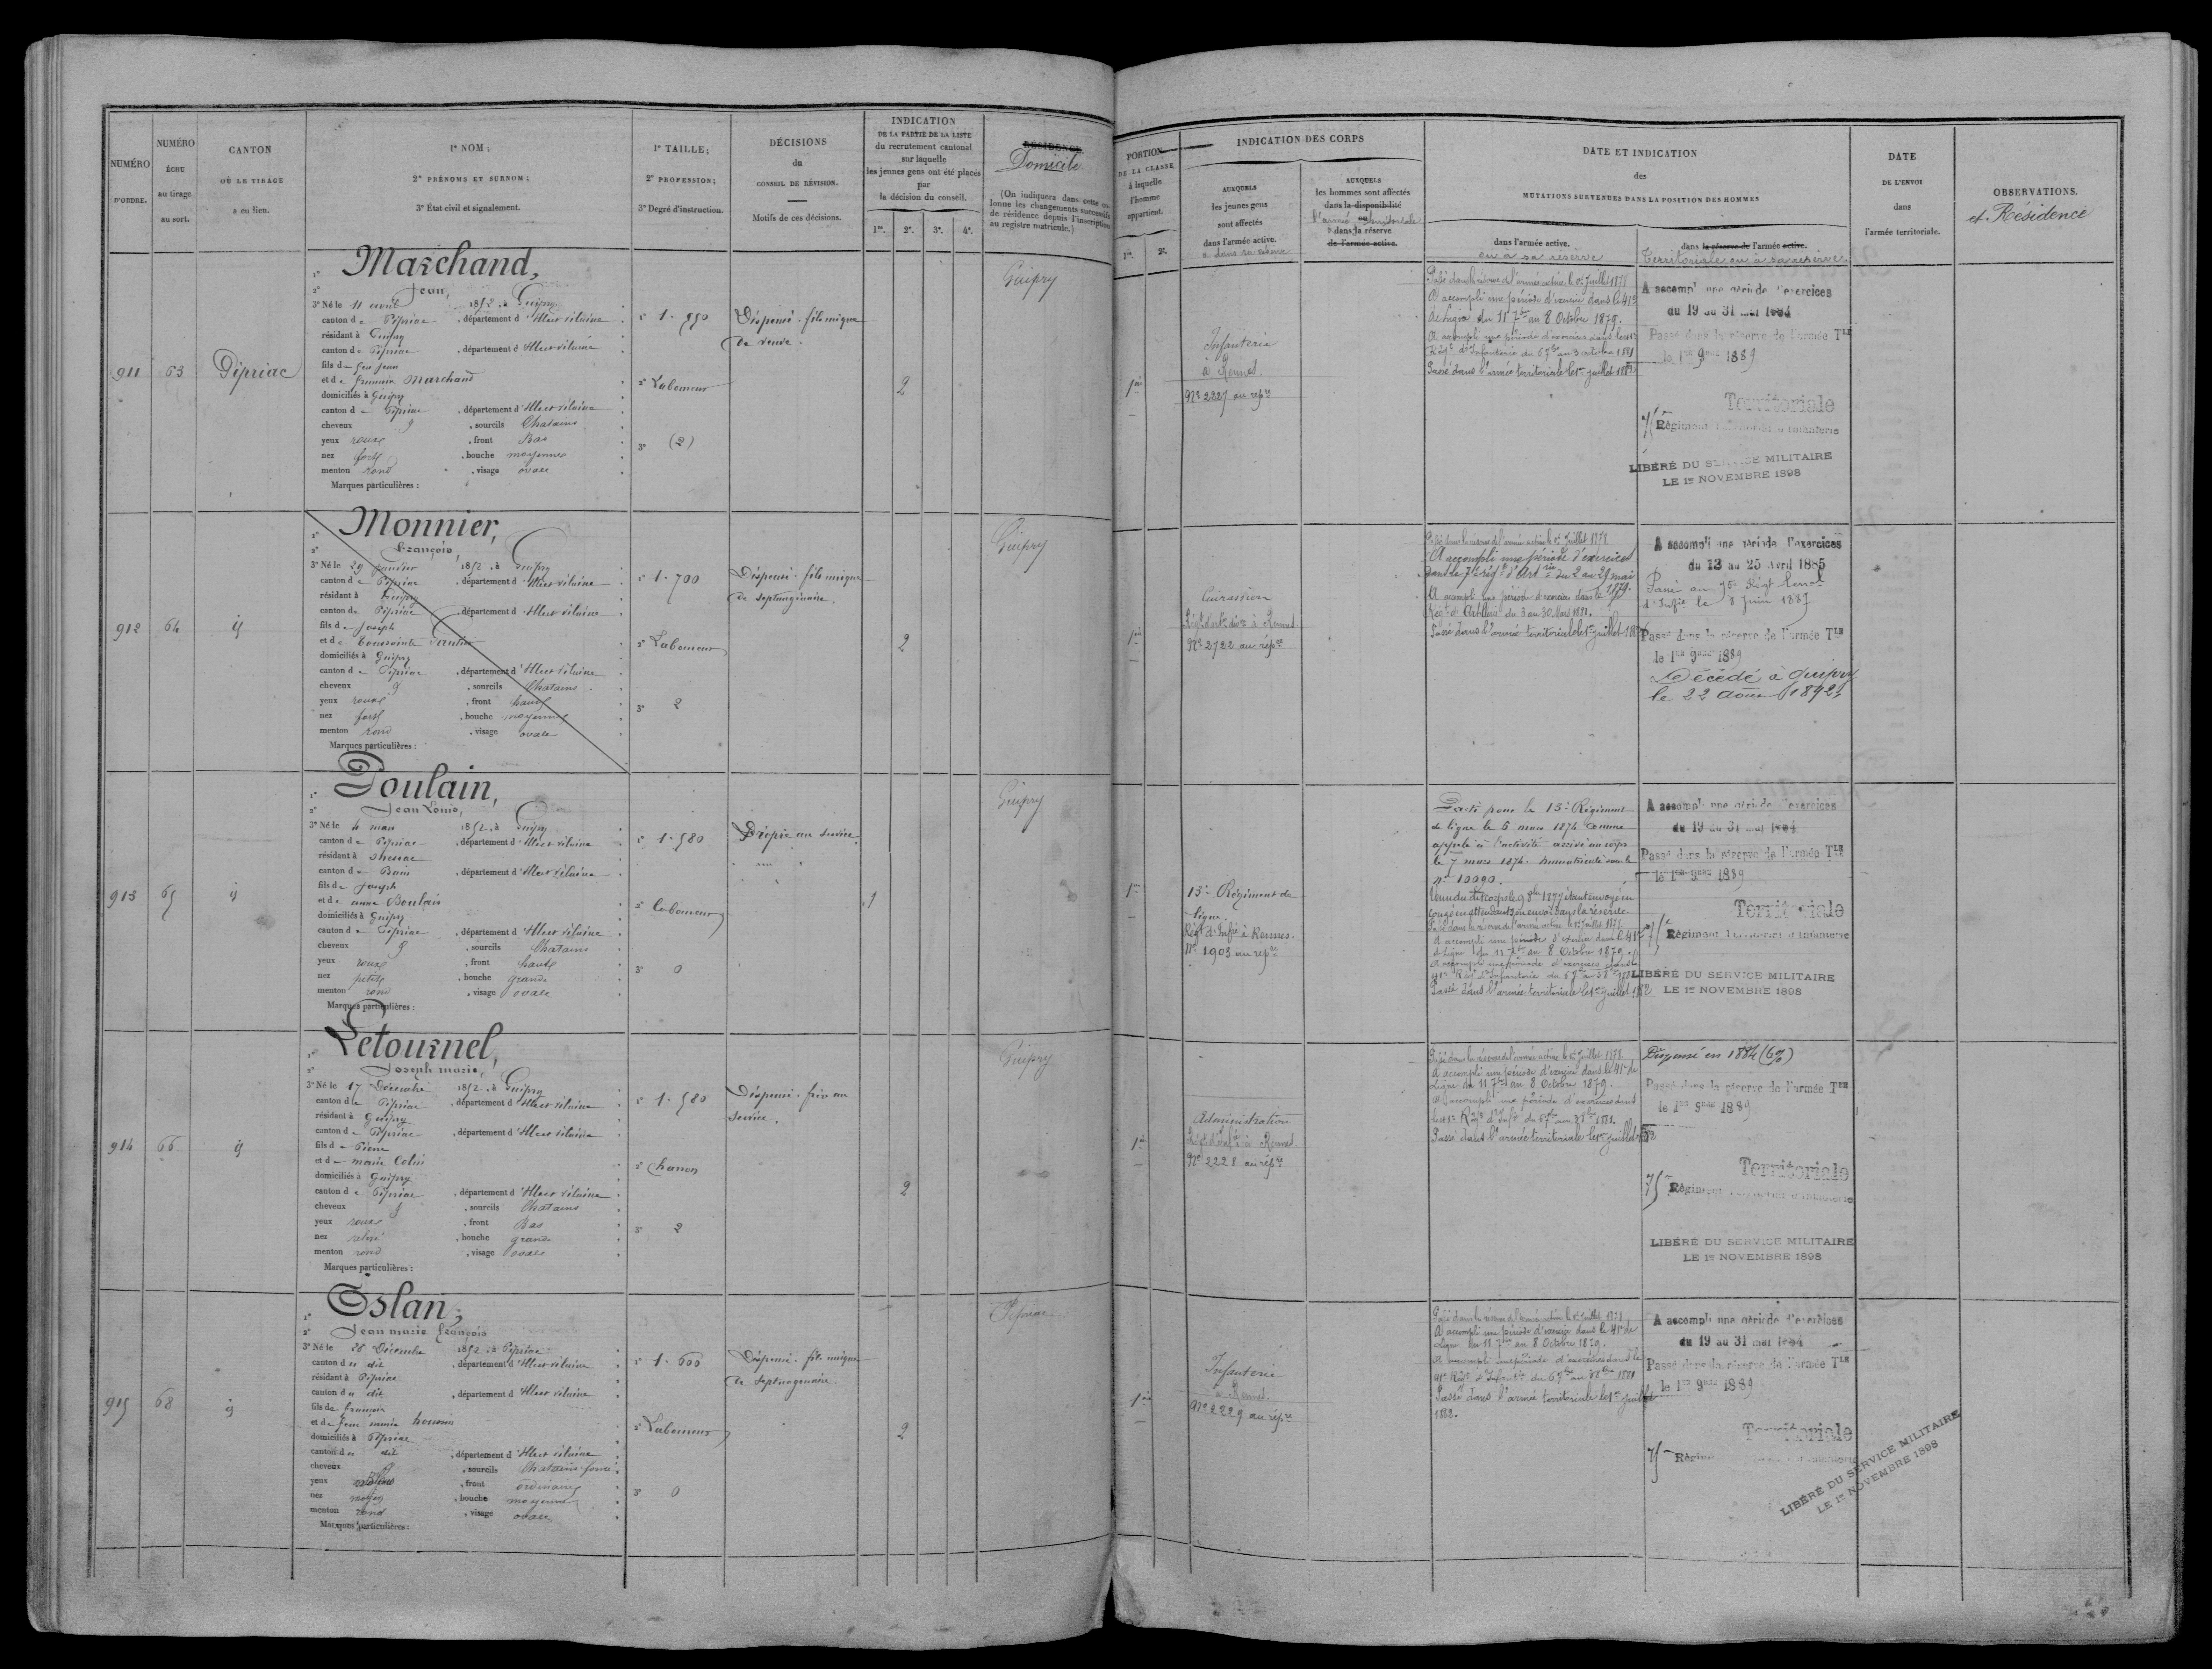 NUMÉRO
D'ORDRE.
NUMÉRO
ÉCHU
au tirage
au sort.
CANTON
OÙ LE TIRAGE
a eu lieu.
1° NOM ;
2° PRÉNOMS ET SURNOM ;
3° État civil et signalement.
1° TAILLE ;
2° PROFESSION ;
3° Degré d'instruction.
DÉCISIONS
du
CONSEIL DE RÉVISION.
Motifs de ces décisions.
INDICATION
DE LA PARTIE DE LA LISTE
du recrutement cantonal
sur laquelle
les jeunes gens ont été placés
par
la décision du conseil.
1re. 2e. 3e. 4e.
RÉSIDENCE
Domicile
(On indiquera dans cette colonne les changements successifs de résidence depuis l'inscription au registre matricule.)
PORTION
DE LA CLASSE
à laquelle
l'homme
appartient.
1re. 2e.
INDICATION DES CORPS
AUXQUELS
les jeunes gens
sont affectés
dans l'armée active.
AUXQUELS
les hommes sont affectés
dans la disponibilité
ou
l'armée territoriale
dans la réserve
de l'armée active.
DATE ET INDICATION
des
MUTATIONS SURVENUES DANS LA POSITION DES HOMMES
dans l'armée active.
ou à sa réserve
dans la réserve de l'armée active.
Territoriale ou à sa réserve
DATE
DE L'ENVOI
dans
l'armée territoriale.
OBSERVATIONS.
et Résidence
911
63
Pipriac
1° Marchand,
2° Jean,
3° Né le 11 avril 1852, à Guipry
canton de Pipriac, département d'Ille et Vilaine
résidant à Guipry
canton de Pipriac, département d'Ille et Vilaine
fils de feu Jean
et de Marchand
domiciliés à Guipry
canton de Pipriac, département d'Ille et Vilaine
cheveux, sourcils Chatains
yeux roux, front Bas
nez fort, bouche moyenne
menton rond, visage ovale
Marques particulières :
1° 1.550
2° Laboureur
3° (2)
Dispensé. fils unique
de veuve.
2
Guipry
1re
Infanterie
à Rennes.
No 2227 au rép.re
Passé dans la réserve de l'armée active le 1er Juillet 1878
A accompli une période d'exercice dans le 41e
de ligne du 11 7bre au 8 Octobre 1879.
Passé dans l'armée territoriale le 1er juillet 1882
A accompli une période d'exercices
du 19 au 31 mai 1884
Passé dans la réserve de l'armée Tle
le 1er 9bre 1889
Territoriale
75e Régiment Territorial d'Infanterie
LIBÉRÉ DU SERVICE MILITAIRE
LE 1er NOVEMBRE 1898
912
64
id
1° Monnier,
2° François,
3° Né le 29 janvier 1852, à Guipry
canton de Pipriac, département d'Ille et Vilaine
résidant à Guipry
canton de Pipriac, département d'Ille et Vilaine
fils de Joseph
et de
domiciliés à Guipry
canton de Pipriac, département d'Ille et Vilaine
cheveux, sourcils Chatains
yeux roux, front haut
nez fort, bouche moyenne
menton rond, visage ovale
Marques particulières :
1° 1.700
2° Laboureur
3° 2
Dispensé. fils unique
de septuagénaire.
2
Guipry
1re
Cuirassier
No 2722 au rép.re
Passé dans la réserve de l'armée active le 1er Juillet 1878
A accompli une période d'exercices
dans le 7e rég.t d'Art.rie du 2 au 29 mai
1879.
Rég.t d'Artillerie du 3 au 30 Mars 1881.
Passé dans l'armée territoriale le 1er juillet 1882
A accompli une période d'exercices
du 13 au 25 Avril 1885
Passé au 75e Régt territ.
d'Inf.ie le 8 Juin 1887
Passé dans la réserve de l'armée Tle
le 1er 9bre 1889
Décédé à Guipry
le 22 août 1892
913
65
id
1° Poulain,
2° Jean Louis,
3° Né le 4 mars 1852, à Guipry
canton de Pipriac, département d'Ille et Vilaine
résidant à Messac
canton de Bain, département d'Ille et Vilaine
fils de Joseph
et de anne Poulain
domiciliés à Guipry
canton de Pipriac, département d'Ille et Vilaine
cheveux, sourcils Chatains
yeux roux, front haut
nez petit, bouche grande
menton rond, visage ovale
Marques particulières :
1° 1.580
2° laboureur
3° 0
Propre au service
1
Guipry
1re
13e Régiment de
ligne.
Rég.t d'Inf.ie à Rennes.
No 1903 au rép.re
Parti pour le 13e Régiment
de ligne le 6 mars 1874 comme
appelé à l'activité arrivé au corps
le 7 mars 1874. Immatriculé sous le
no 10090.
congé en attendant son envoi dans la réserve.
Passé dans la réserve de l'armée active le 1er Juillet 1878
A accompli une période d'exercice dans le 41e
de ligne du 11 7bre au 8 Octobre 1879.
Passé dans l'armée territoriale le 1er juillet 1882
A accompli une période d'exercices
du 19 au 31 mai 1884
Passé dans la réserve de l'armée Tle
le 1er 9bre 1889
Territoriale
75e Régiment Territorial d'Infanterie
LIBÉRÉ DU SERVICE MILITAIRE
LE 1er NOVEMBRE 1898
914
66
id
1° Letournel,
2° Joseph marie,
3° Né le 17 Décembre 1852, à Guipry
canton de Pipriac, département d'Ille et Vilaine
résidant à Guipry
canton de Pipriac, département d'Ille et Vilaine
fils de Pierre
et de marie Colin
domiciliés à Guipry
canton de Pipriac, département d'Ille et Vilaine
cheveux, sourcils Chatains
yeux roux, front Bas
nez relevé, bouche grande
menton rond, visage ovale
Marques particulières :
1° 1.580
2°
3° 2
Dispensé. frère au
service.
2
Guipry
1re
Administration
Rég.t d'Inf.ie à Rennes
No 2228 au rép.re
Passé dans la réserve de l'armée active le 1er Juillet 1878
A accompli une période d'exercice dans le 41e de
ligne du 11 7bre au 8 Octobre 1879.
Passé dans l'armée territoriale le 1er juillet 1882
Dispensé en 1884 (6%)
Passé dans la réserve de l'armée Tle
le 1er 9bre 1889
Territoriale
75e Régiment Territorial d'Infanterie
LIBÉRÉ DU SERVICE MILITAIRE
LE 1er NOVEMBRE 1898
915
68
id
1° Eslan,
2° Jean marie François
3° Né le 28 Décembre 1852, à Pipriac
canton du dit, département d'Ille et Vilaine
résidant à Pipriac
canton du dit, département d'Ille et Vilaine
fils de François
et de
domiciliés à Pipriac
canton du dit, département d'Ille et Vilaine
cheveux, sourcils Chatains foncé
yeux, front ordinaire
nez moyen, bouche moyenne
menton rond, visage ovale
Marques particulières :
1° 1.600
2° Laboureur
3° 0
Dispensé. fils unique
de septuagénaire
2
Pipriac
1re
Infanterie
à Rennes.
No 2229 au rép.re
Passé dans la réserve de l'armée active le 1er Juillet 1878
A accompli une période d'exercice dans le 41e de
ligne du 11 7bre au 8 Octobre 1879.
Passé dans l'armée territoriale le 1er juillet
1882.
A accompli une période d'exercices
du 19 au 31 mai 1884
Passé dans la réserve de l'armée Tle
le 1er 9bre 1889
Territoriale
75e
LIBÉRÉ DU SERVICE MILITAIRE
LE 1er NOVEMBRE 1898